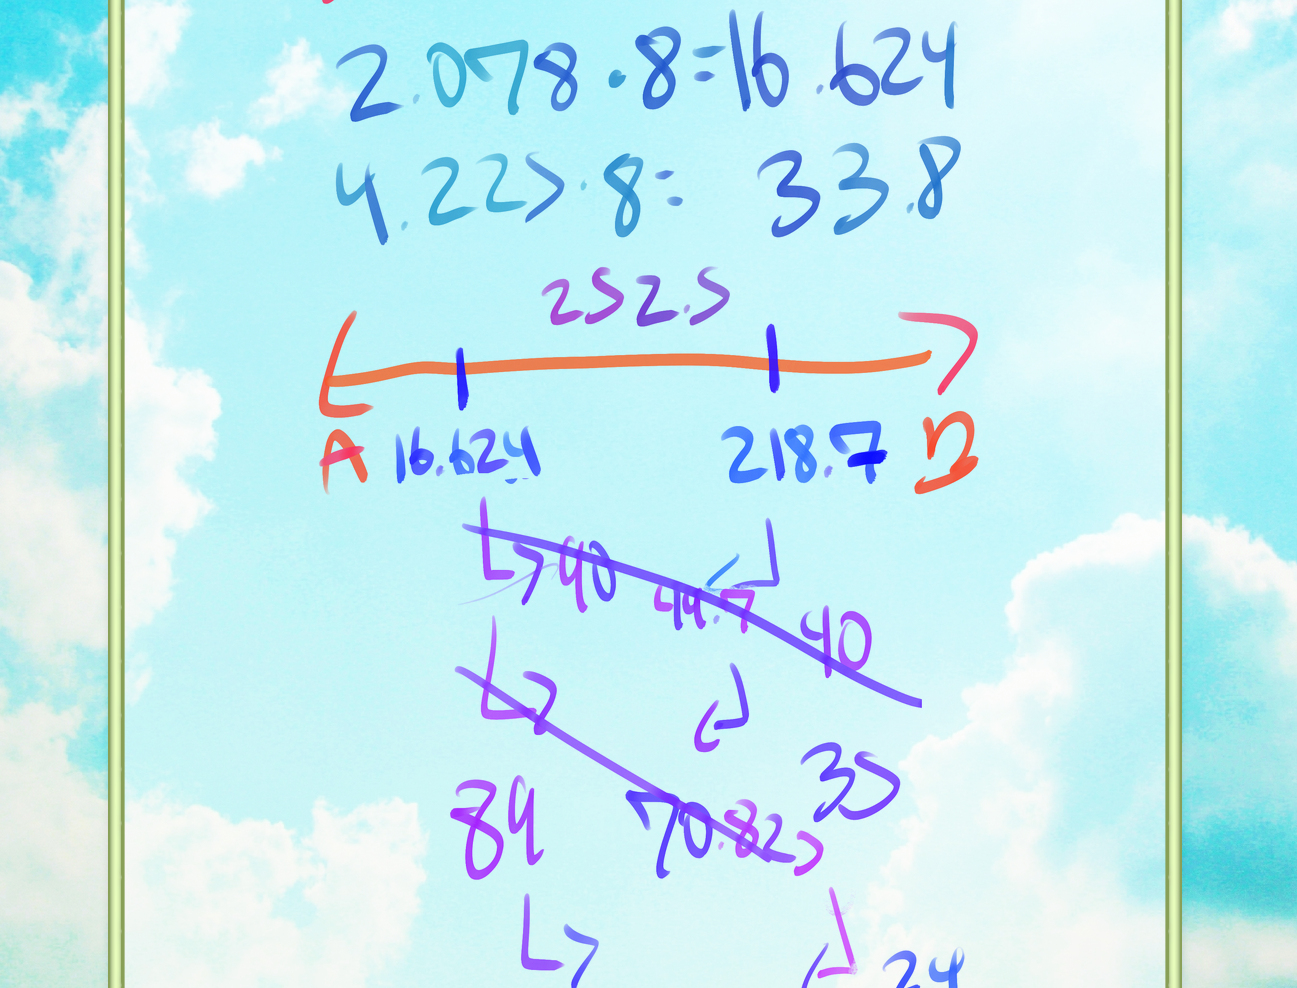 2.078 · 8 = 16.624
4.225 · 8 = 33.8
252.5
A 16.624 218.7 B
40
44.7 40
35
89 70.825
24